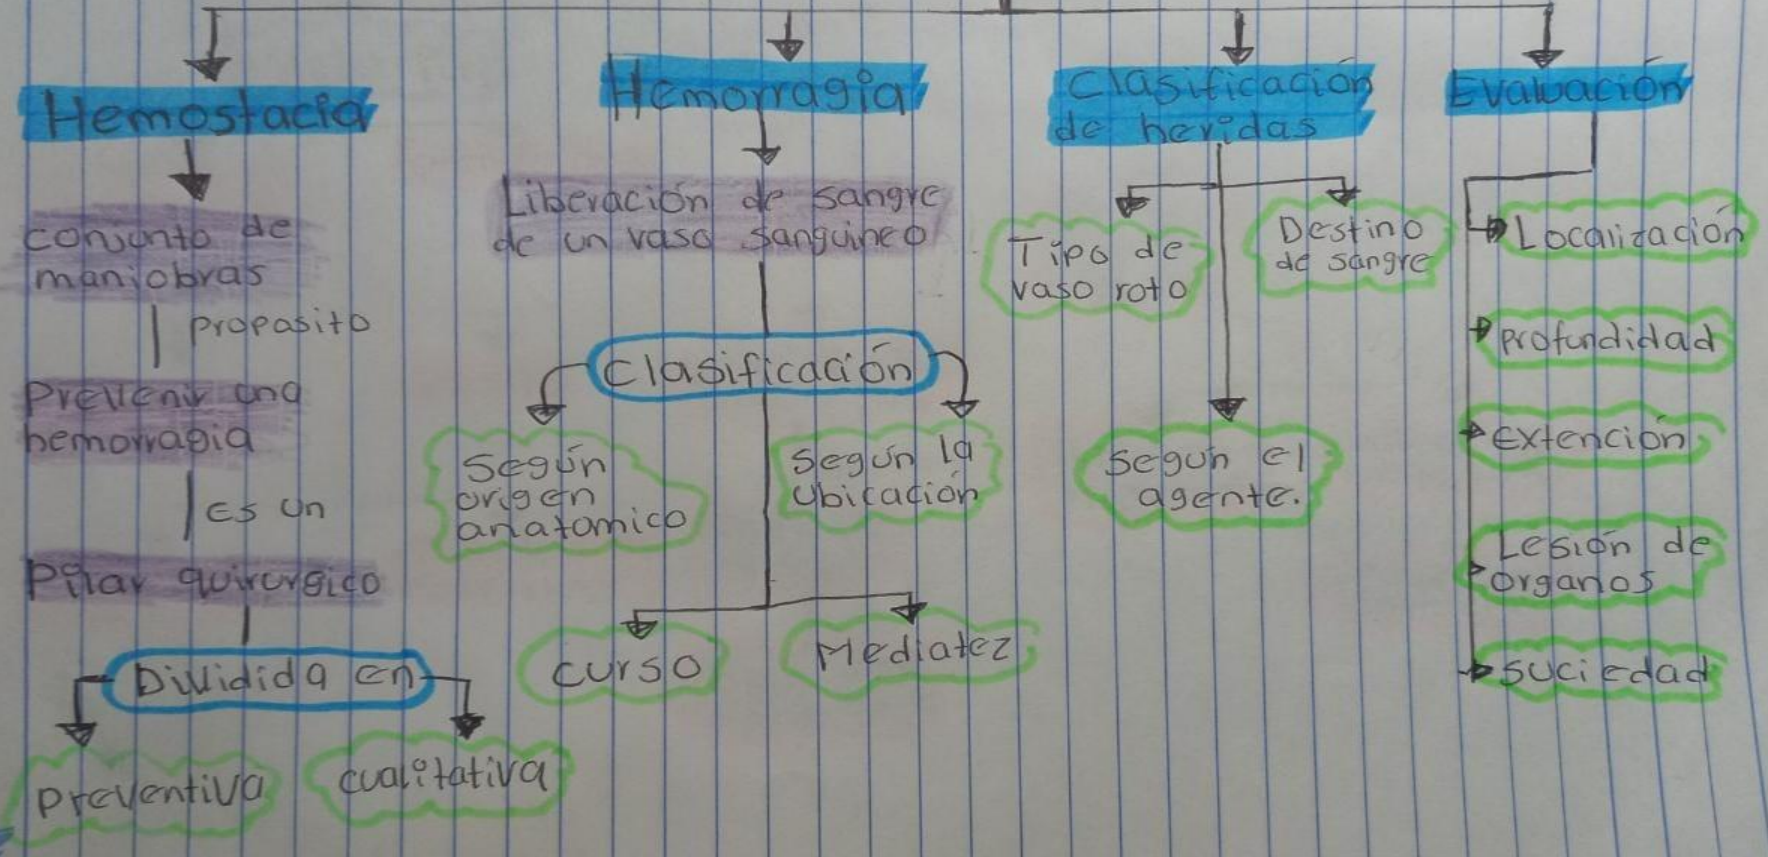 Hemostacia
conunto de
maniobras
propasito
Prevenir una
hemorragia
Es un
Pilar quirurgico
Dividida en
preventiva
cualitativa
Hemorragia
Liberación de sangre
de un vaso sanguineo
Clasificación
Según
origen
anatomico
Según la
Ubicación
curso
Mediatez
Clasificación
de heridas
Tipo de
vaso roto
Destino
de sangre
Segun el
agente.
Evaluación
Localización
profundidad
Extención
Lesión de
organos
suciedad